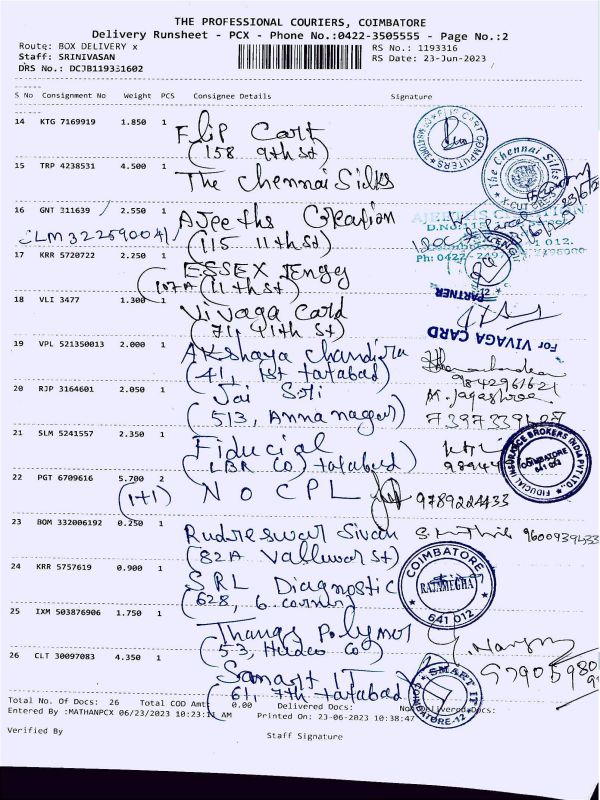 THE PROFESSIONAL COURIERS, COIMBATORE
Delivery Runsheet - PCX - Phone No.:0422-3505555 - Page No.:2
Route: BOX DELIVERY x
RS No.: 1193316
Staff: SRINIVASAN
RS Date: 23-Jun-2023
DRS No.: DCJB119331602
S No Consignment No Weight PCS Consignee Details Signature
14 KTG 7169919 1.850 1
Flip Cart
(158 9th st)
15 TRP 4238531 4.500 1
The Chennai Silks
The Chennai Silks
16 GNT 311639 2.550 1
Ajeeths Creation
CLM322690041
(115 11th st)
17 KRR 5720722 2.250 1
ESSEX Engg
(107A (11th st)
18 VLI 3477 1.300 1
Vivaga Card
(71, 11th st)
PARTNER
For VIVAGA CARD
19 VPL 521350013 2.000 1
Akshaya Chandira
(41, 1st tatabad)
9842961621
20 RJP 3164601 2.050 1
Jai Sri
M. Jagashree
(513, Annanagar)
21 SLM 5241557 2.350 1
Fiducial
(LBR Co) tatabad)
FIDUCIAL INSURANCE BROKERS INDIA PVT LTD
COIMBATORE
641 012
22 PGT 6709616 5.700 2
(1+1) NO CPL
9789224433
23 BOM 332006192 0.250 1
Rudreswar Sivan
(82A Valluvar st)
24 KRR 5757619 0.900 1
SRL Diagnostic
(628, 6 corner)
COIMBATORE
641 012
25 IXM 503876906 1.750 1
Thangs Polymer
26 CLT 30097083 4.350 1
Samart IT
(61, 7th tatabad)
SMART IT
COIMBATORE-12
Total No. Of Docs: 26 Total COD Amt: 0.00 Delivered Docs: Non Delivered Docs:
Entered By :MATHANPCX 06/23/2023 10:23:11 AM Printed On: 23-06-2023 10:38:47
Verified By
Staff Signature